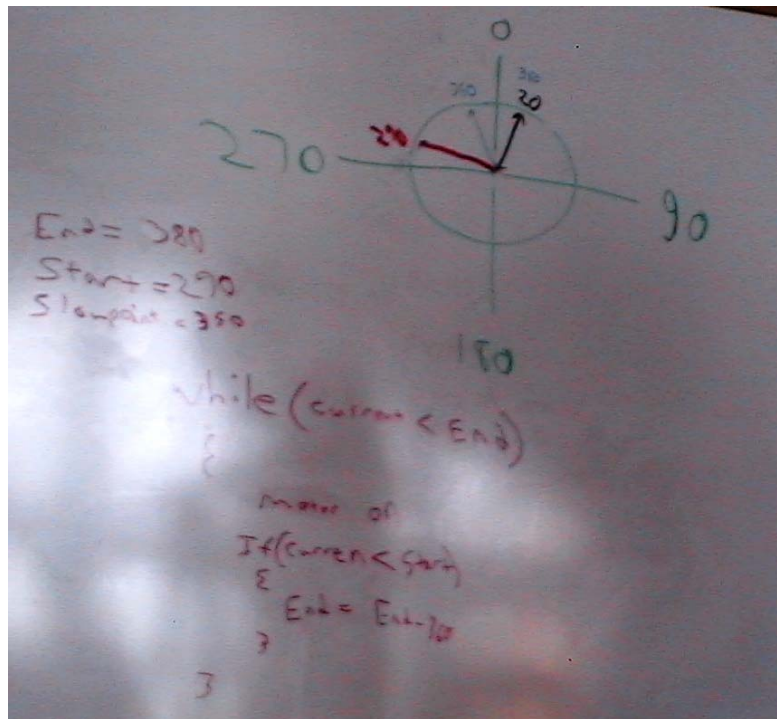 0
380
20
290
270
90
180
End = 380
Start = 290
Slowpoint = 350
while (current < End)
{
motor on
If(curren < Start)
{
End = End-360
}
}